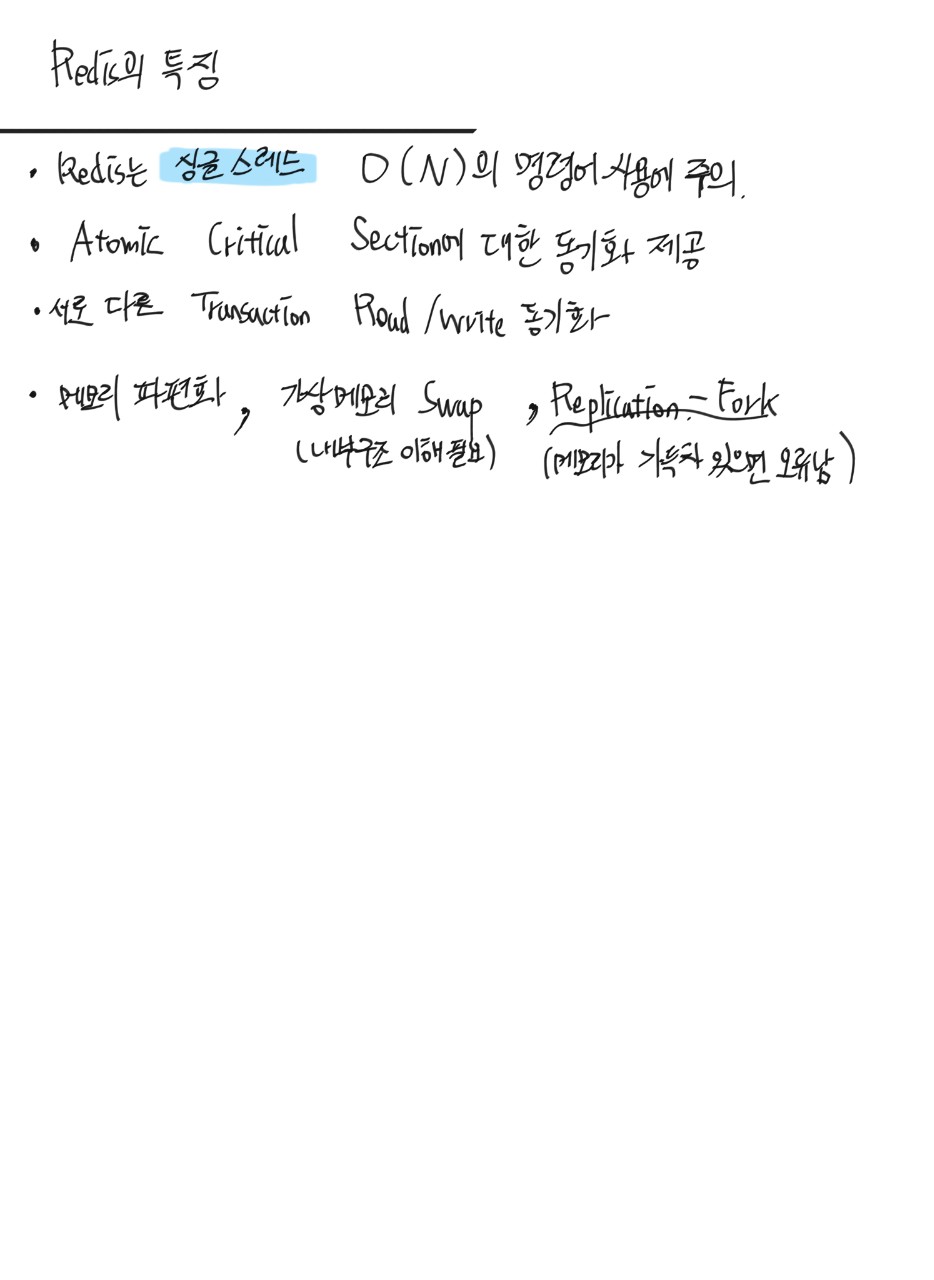 Redis의 특징
• Redis는 싱글 스레드 O(N)의 명령어 사용에 주의.
• Atomic Critical Section에 대한 동기화 제공
• 서로 다른 Transaction Read/write 동기화
• 메모리 파편화, 가상메모리 Swap, Replication - Fork
(내부구조 이해 필요) (메모리가 가득차 있으면 오류남)